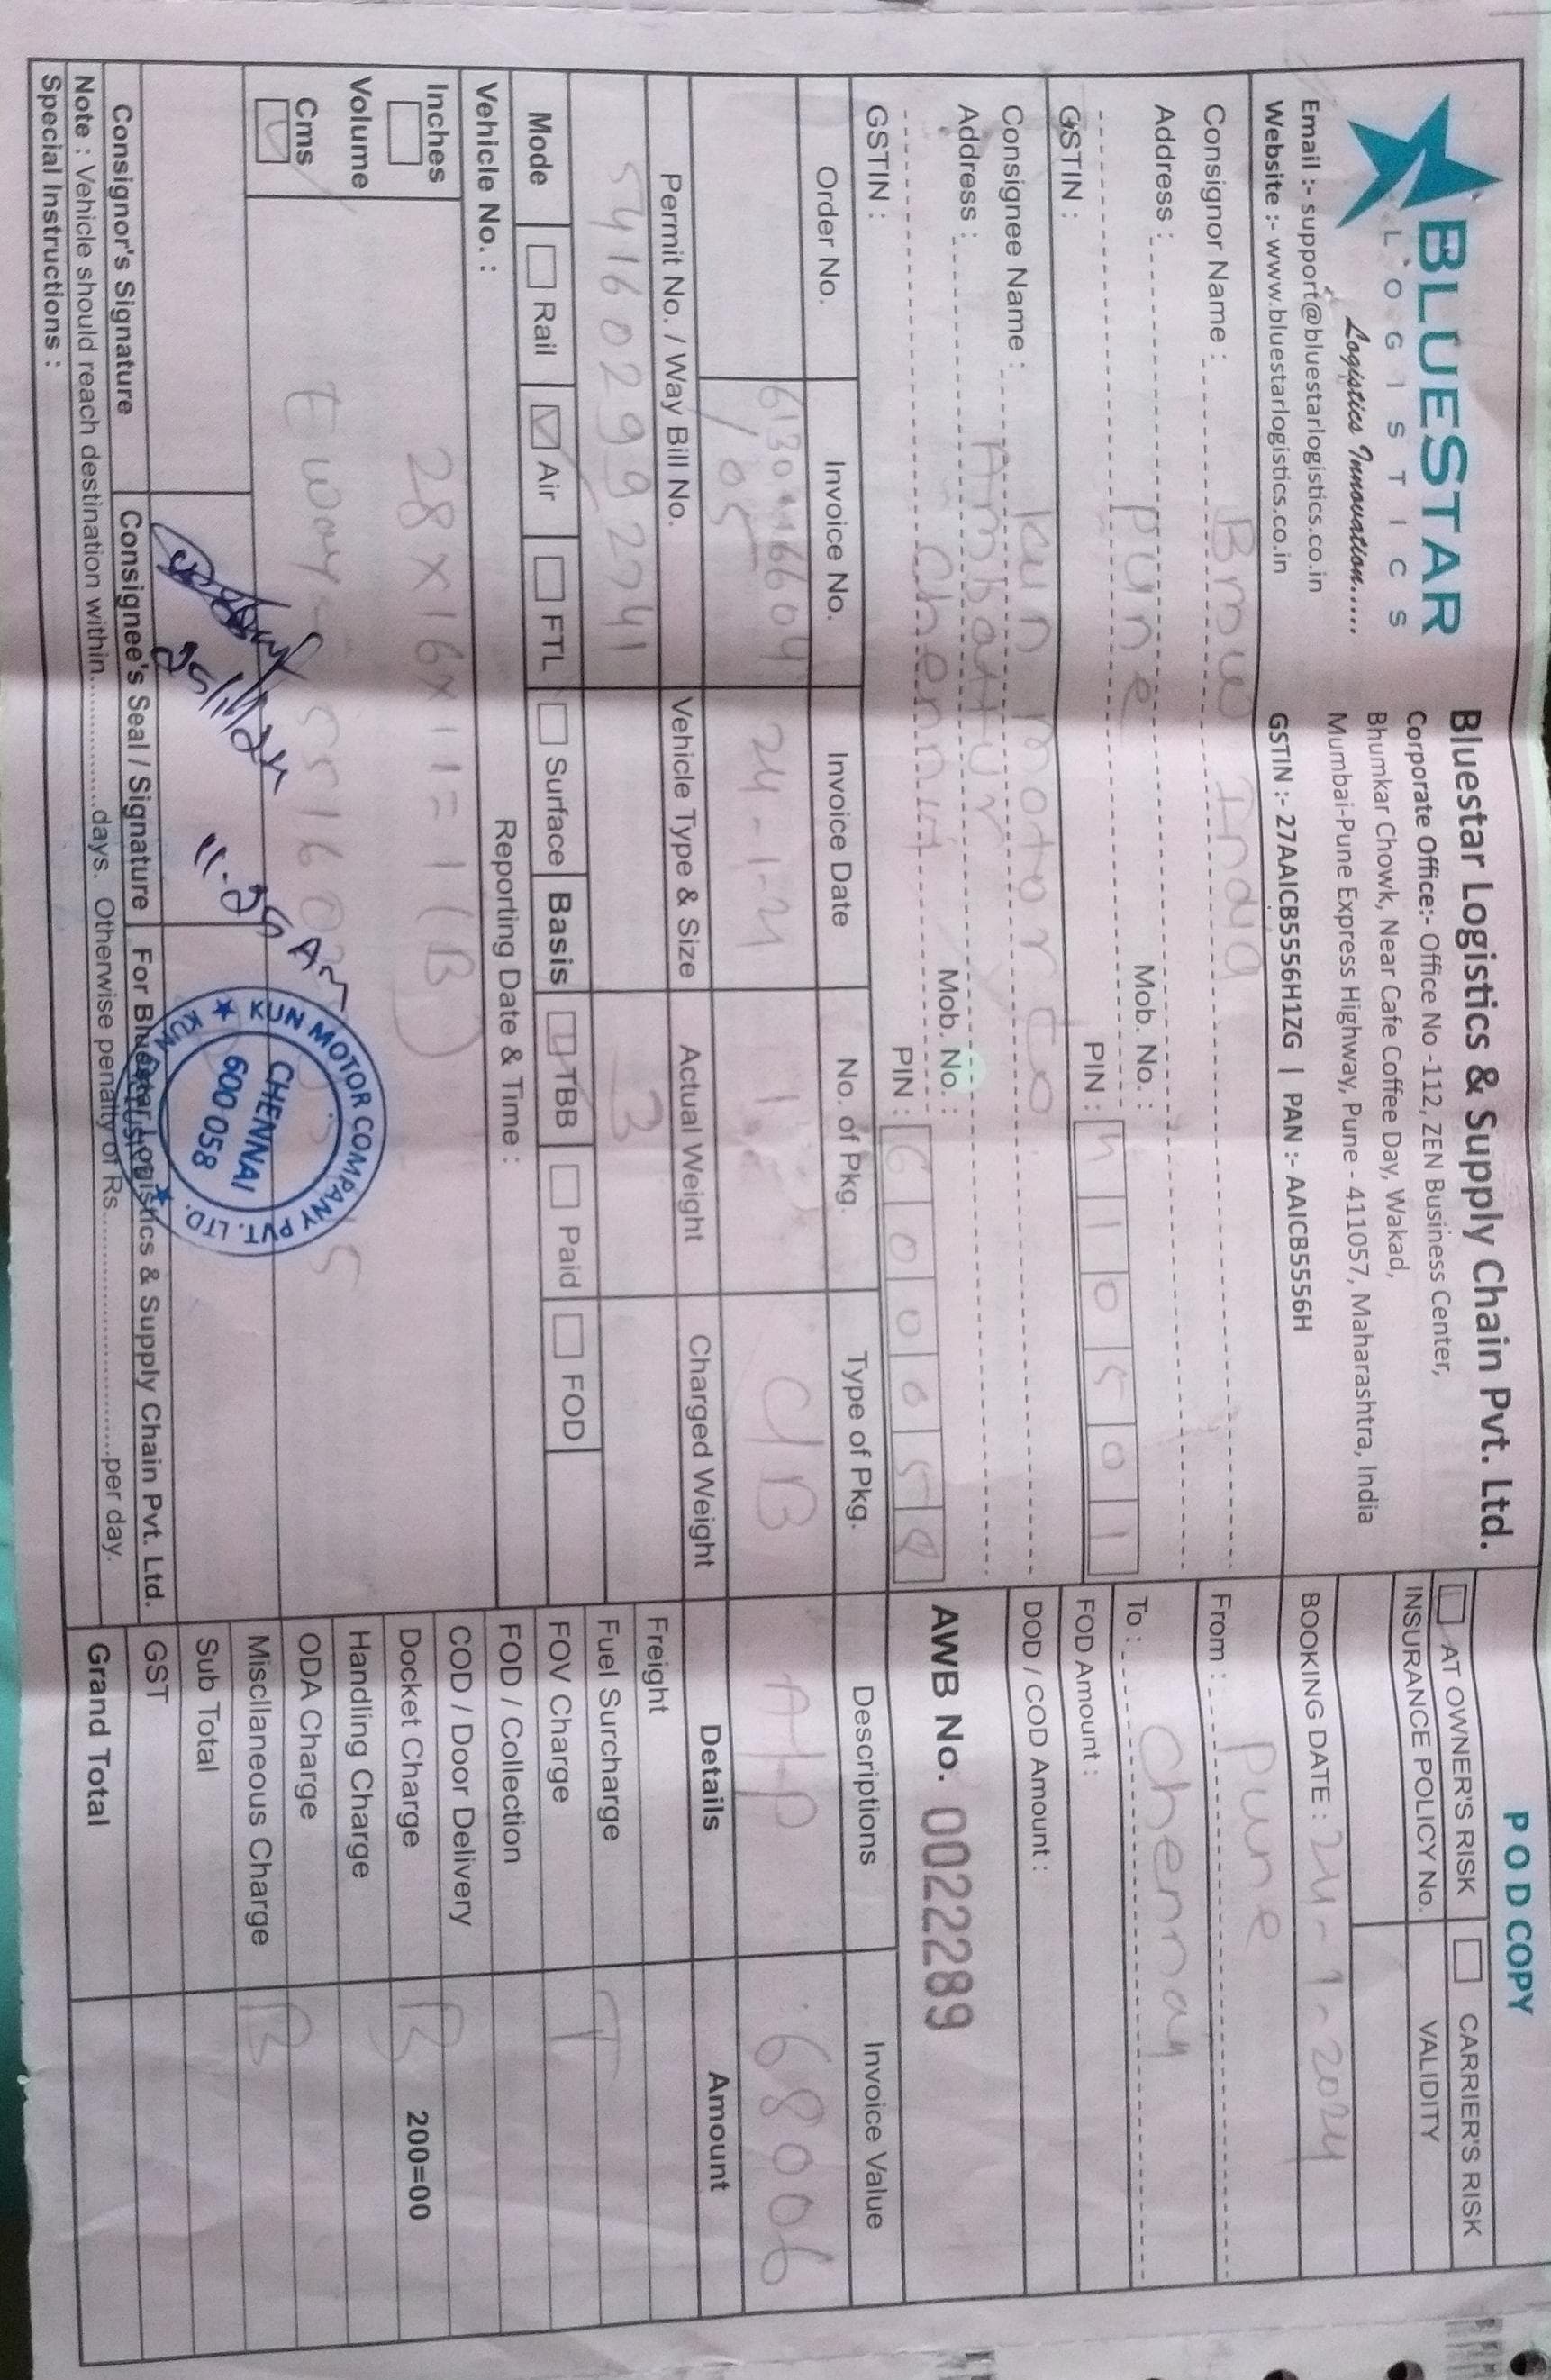 POD COPY
BLUESTAR
LOGISTICS
Logistics Innovation.....
Email :- support@bluestarlogistics.co.in
Website :- www.bluestarlogistics.co.in
Bluestar Logistics & Supply Chain Pvt. Ltd.
Corporate Office:- Office No -112, ZEN Business Center,
Bhumkar Chowk, Near Cafe Coffee Day, Wakad,
Mumbai-Pune Express Highway, Pune - 411057, Maharashtra, India
GSTIN :- 27AAICB5556H1ZG | PAN :- AAICB5556H
AT OWNER'S RISK CARRIER'S RISK
INSURANCE POLICY No. VALIDITY
BOOKING DATE : 24-1-2024
From : Pune
To : Chennay
FOD Amount :
DOD / COD Amount :
AWB No. 0022289
Consignor Name : Bmw India
Address :
Pune Mob. No. :
PIN : 410501
GSTIN :
Consignee Name : Kun motor co
Address : Ambattur
Chennai Mob. No. :
PIN : 600058
GSTIN :
Order No. Invoice No. Invoice Date No. of Pkg. Type of Pkg. Descriptions Invoice Value
/05 1 C/B A/P 68006
Permit No. / Way Bill No. Vehicle Type & Size Actual Weight Charged Weight Details Amount
541602992741 3
Mode Rail Air FTL Surface Basis TBB Paid FOD
Vehicle No. : Reporting Date & Time :
Inches
Volume
Cms
28x16x11=1(B)
E way
25/1/24
11-25 AM
KUN MOTOR COMPANY PVT. LTD.
CHENNAI
600 058
KUN EXCLUSIVE
Freight
Fuel Surcharge
FOV Charge
FOD / Collection
COD / Door Delivery
Docket Charge 200=00
Handling Charge
ODA Charge
Miscllaneous Charge
Sub Total
GST
Grand Total
T
B
B
Consignor's Signature Consignee's Seal / Signature For Bluestar Logistics & Supply Chain Pvt. Ltd.
Note : Vehicle should reach destination within................days. Otherwise penalty of Rs..............................per day.
Special Instructions :